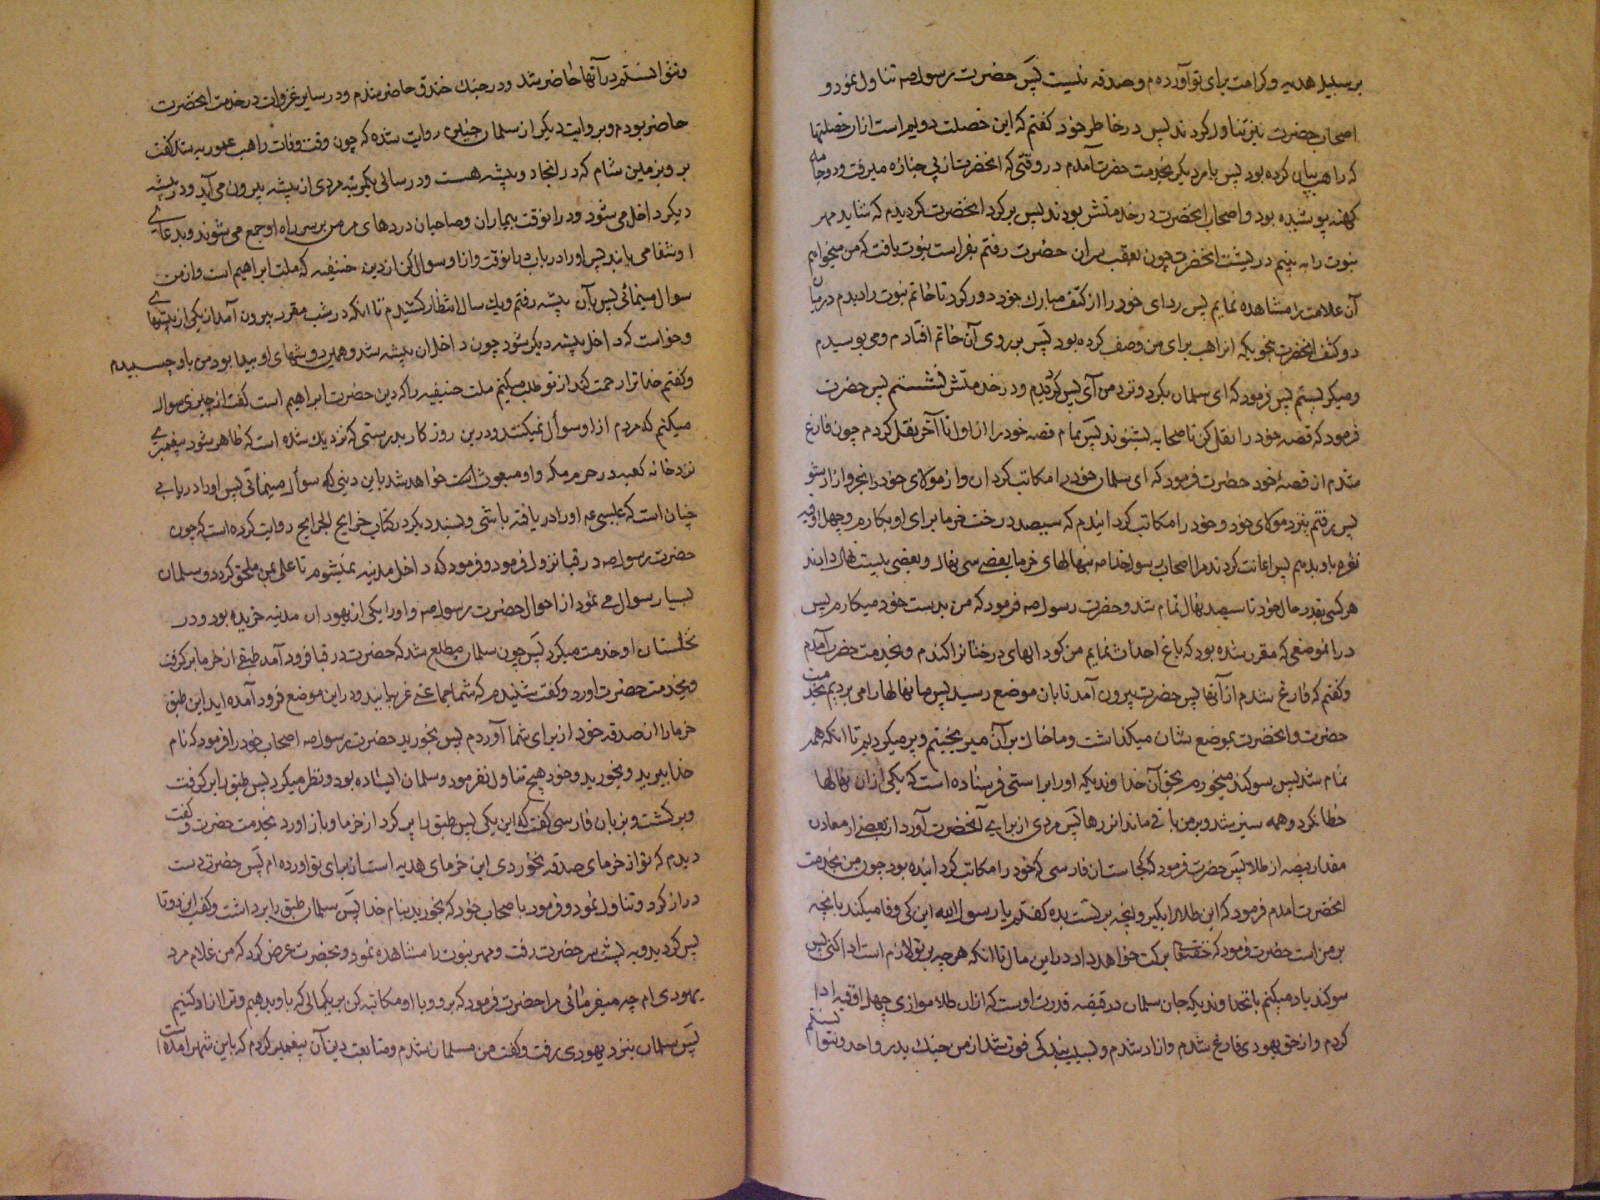 بر سبیل هدیه و کرامت برای تو آورده‌م و صدقه نیست پس حضرت رسول صه تناول نمود و
اصحاب حضرت نیز تناول کردند پس در خاطر خود گفتم که این خصلت دویم است از ان خصلتها
که راهب بیان کرده بود پس بار دیگر بخدمت حضرت آمدم در وقتی که انحضرت از پی جنازه میرفت و دو جامه
کهنه پوشیده بود و اصحاب انحضرت در خدمتش بودند پس بر کرد انحضرت کردیدم که شاید مهر
نبوت را به بینم در پشت انحضرت چون بعقب سر ان حضرت رفتم بفراست نبوت یافت که من میخواهم
آن علامت را مشاهده نمایم پس ردای خود را از کتف مبارک خود دور کرد تا خاتم نبوت را دیدم در میان
دو کتف انحضرت بنحویکه ان راهب برای من وصف کرده بود پس بر روی آن خاتم افتادم و می بوسیدم
و میکریستم پس فرمود که ای سلمان بکرد و نزد من آی پس کردیدم و در خدمتش نشستم پس حضرت
فرمود که قصه خود را نقل کن تا صحابه بشنوند پس تمام قصه خود را از اول تا آخر نقل کردم چون فارغ
شدم از قصهٔ خود حضرت فرمود که ای سلمان خود را مکاتب کردان و از مولای خود را بخر و ازاد شو
پس رفتم بنزد مولای خود و خود را مکاتب کردانیدم که سیصد درخت خرما برای او بکارم و چهل اوقیه
نقره باو بدهم پس اعانت کردند مرا اصحاب رسول خدا صه بنهالهای خرما بعضی سی نهال و بعضی بیست نهال دادند
هر کسی بقدر حال خود تا سیصد نهال تمام شد و حضرت رسول صه فرمود که من بدست خود میکارم پس
در انموضعی که مقرر شده بود که باغ احداث نمایم من کودالهای درختانرا کندم و بخدمت حضرت آمدم
و کفتم که فارغ شدم از آنها پس حضرت بیرون آمد تا بان موضع رسید پس ما نهالها را می بردیم بخدمت
حضرت و انحضرت بموضع نشان میکذاشت و ما خاک بر آن میریختیم و پر میکردیم تا انکه همه
تمام شد پس سوکند میخورم بحق آن خداوندیکه او را براستی فرستاده است که یکی از ان نهالها
خطا نکرد و همه سبز شد و بر من باقی ماند ان زرها پس مردی از برای آنحضرت آورد از بعضی از معادن
مقدار بیضه از طلا پس حضرت فرمود که کجاست ان فارسی که خود را مکاتب کردانیده بود چون من بخدمت
انحضرت امدم فرمود که این طلا را بکیر و انچه بر تست بده کفتم یا رسول الله این کی وفا میکند بانچه
بر من است حضرت فرمود که حقتعالی برکت خواهد داد در این مال تا انکه هر چه بر تو لازم است ادا کنی پس
سوکند یاد میکنم بانخداوندیکه جان سلمان در قبضه قدرت اوست که از ان طلا موازی چهل اوقیه ادا
کردم و از حق یهودی فارغ شدم و ازاد شدم و بسبب بندکی فوت شد از من جنک بدر و احد و نتوانستم
و نتوانستم در آنها حاضر شد و در جنک خندق حاضر شدم و در سایر غزوات در خدمت انحضرت
حاضر بودم و بروایت دیکر از سلمان چنین روایت شده که چون وقت وفات راهب عموریه شد کفت
برو بزمین شام که در انجا دو بیشه هست و در سالی یکمرتبه مردی از بیشه بیرون می آید و در بیشه
دیکر داخل می شود و در انوقت بیماران و صاحبان دردهای مزمن بر سر راه او جمع می شوند و بدعای
او شفا می یابند پس او را دریاب در انوقت و از او سوال کن از دین حنیفیه که ملت ابراهیم است و از من
سوال مینمائی پس بآن بیشه رفتم و یک سال انتظار کشیدم تا انکه در شب مقرر بیرون آمد از یکی از بیشهای
و خواست که داخل بیشه دیکر شود چون داخل ان بیشه شد و همین دوشهای او پیدا بود من باو چسبیدم
و کفتم خدا ترا رحمت کند از تو طلب میکنم ملت حنیفیه را که دین حضرت ابراهیم است کفت از چیزی سوال
میکنی که مردم از او سوأل نمیکنند و درین روز کار بدرستی که نزدیک شده است که ظاهر شود پیغمبری
نزد خانه کعبه در حرم مکه و او مبعوث خواهد شد باین دینی که سوأل مینمائی پس او را دریابی
چنان است که عیسی عم را دریافته باشی و بسند دیکر در کتاب خرایج الجرایح روایت کرده است که چون
حضرت رسول صه در قبا نزول فرمود و فرمود که داخل مدینه نمیشوم تا علی بمن ملحق کردد و سلمان
بسیار سوال می نمود از احوال حضرت رسول صه و او را یکی از یهودان مدینه خریده بود و در
نخلستان او خدمت میکرد پس چون سلمان مطلع شد که حضرت در قبا فرود آمد طبقی از خرما بر کرفت
و بخدمت حضرت اورد و کفت شنیدم که شما جماعتی غریبانید و در این موضع فرود آمده اید این طبق
خرما را از صدقه خود از برای شما آوردم پس بخورید حضرت رسول صه اصحاب خود را فرمود که نام
خدا ببرید و بخورید و خود هیچ تناول نفرمود و سلمان ایستاده بود و نظر میکرد پس طبق را بر کرفت
و بر کشت و بزبان فارسی کفت که این یکی پس طبق را پر کرد از خرما و باز اورد بخدمت حضرت و کفت
دیدم که تو از خرمای صدقه نخوردی این خرمای هدیه است از برای تو اورده ام پس حضرت دست
دراز کرد و تناول نمود و فرمود باصحاب خود که بخورید بنام خدا پس سلمان طبق را برداشت و کفت این دو تا
پس کردید و به پشت سر حضرت رفت و مهر نبوت را مشاهده نمود و بحضرت عرض کرد که من غلام مرد
یهودی ام چه میفرمائی مرا حضرت فرمود که برو و با او مکاتبه کن بر یکمالی که باو بدهیم و ترا ازاد کنیم
پس سلمان بنزد یهودی رفت و کفت من مسلمان شدم و متابعت دین آن پیغمبر کردم که باین شهر آمده